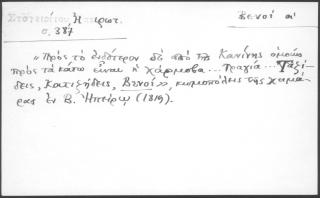 Στοιχείου Ηπειρωτ.
σ. 387
Βενοί οἱ
"Πρὸς τὸ ἐνδότερον δὲ ἀπὸ τῆς Κανίνης ὁμοίως
πρὸς τὰ κάτω εἶναι ἡ χάρμοβα... Πραγία... Ταξί-
δεις, Κατιζῆδεις, Βενοί», κωμοπόλεις τῆς χειμά-
ρας ἐν Β. Ἠπείρῳ (1819).